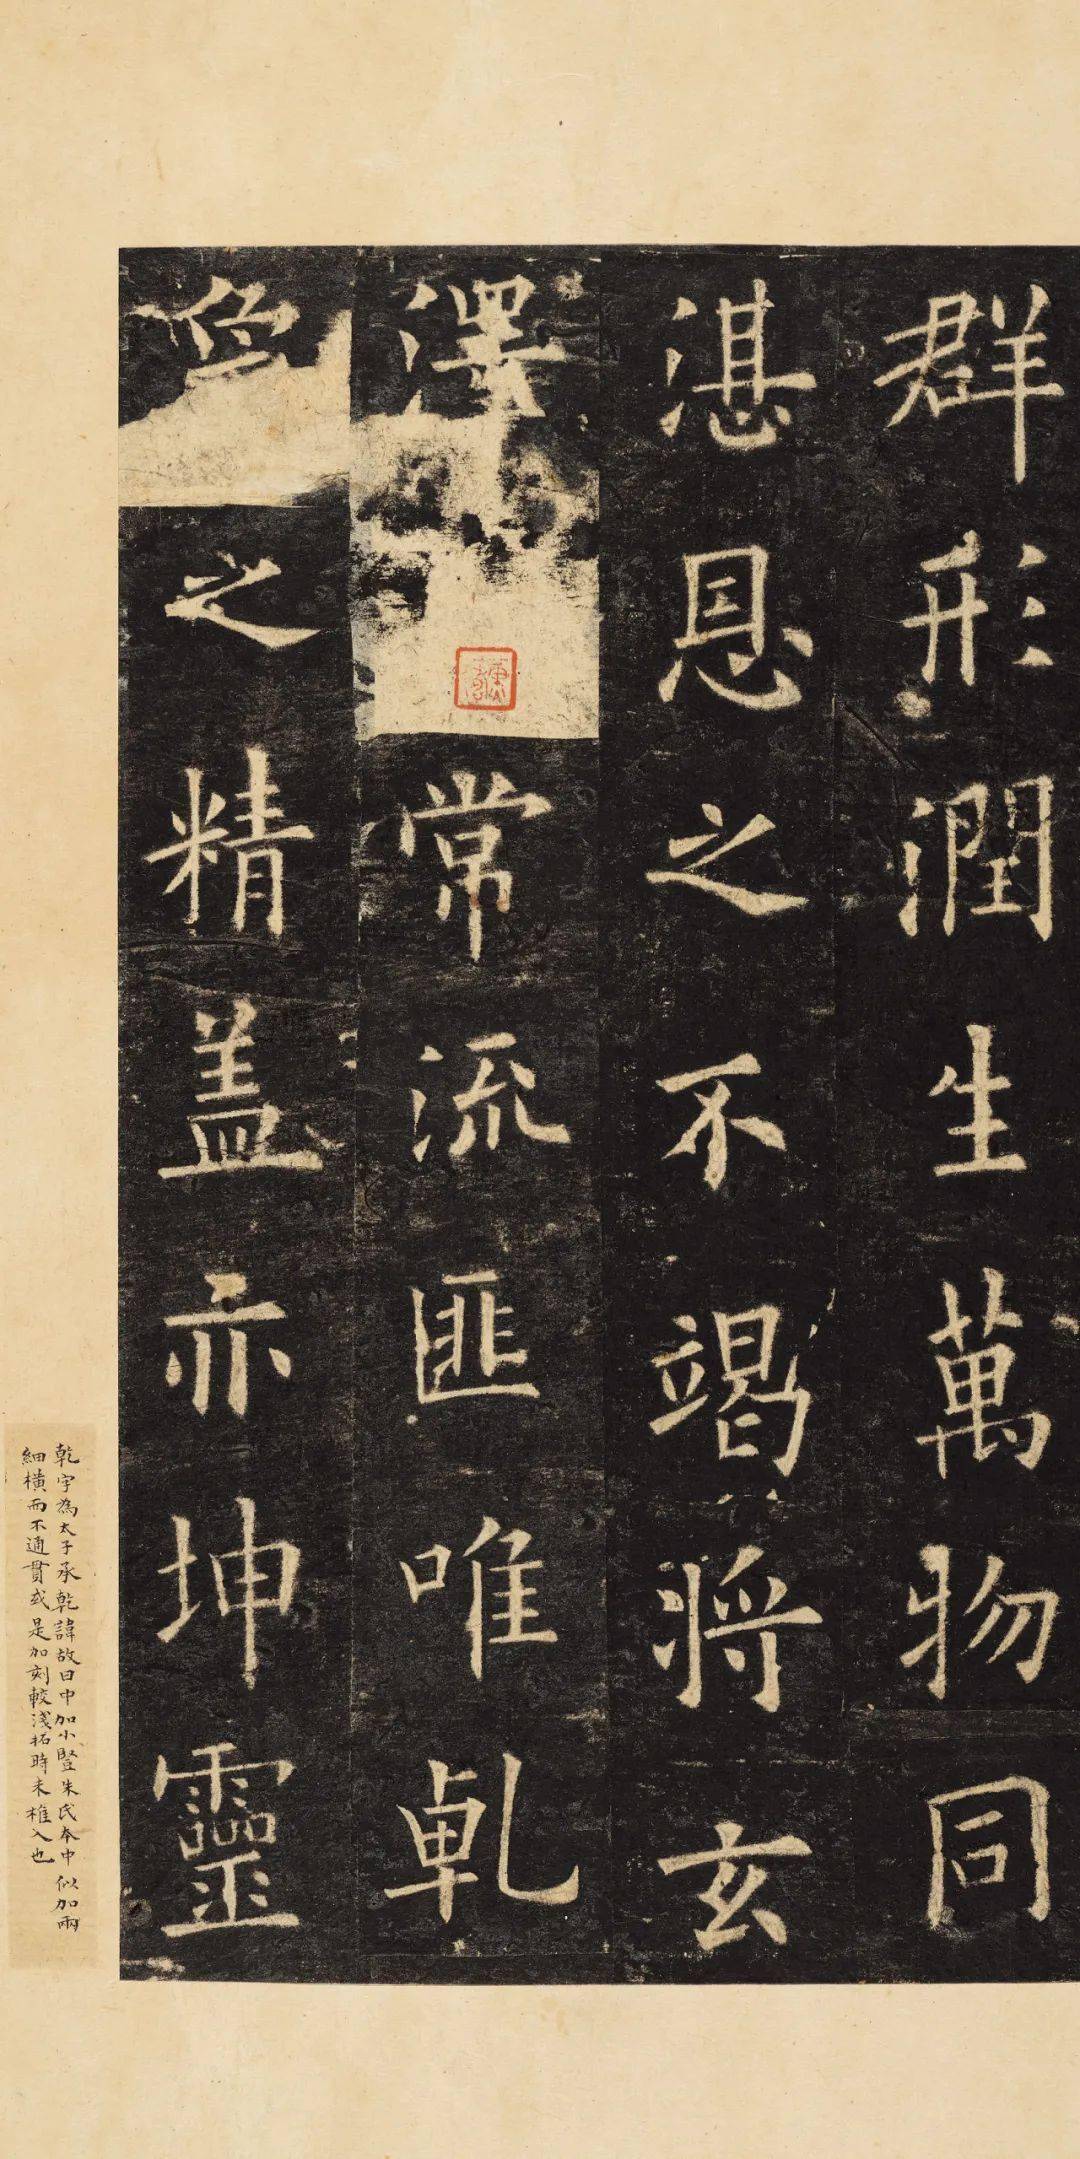 群形潤生萬物同
湛恩之不竭將玄
澤常流匪唯乹
象之精盖亦坤靈
乾字為太子承乾諱故日中加小豎朱氏本中似加兩
細橫而不通貫或是加刻較淺拓時未椎入也